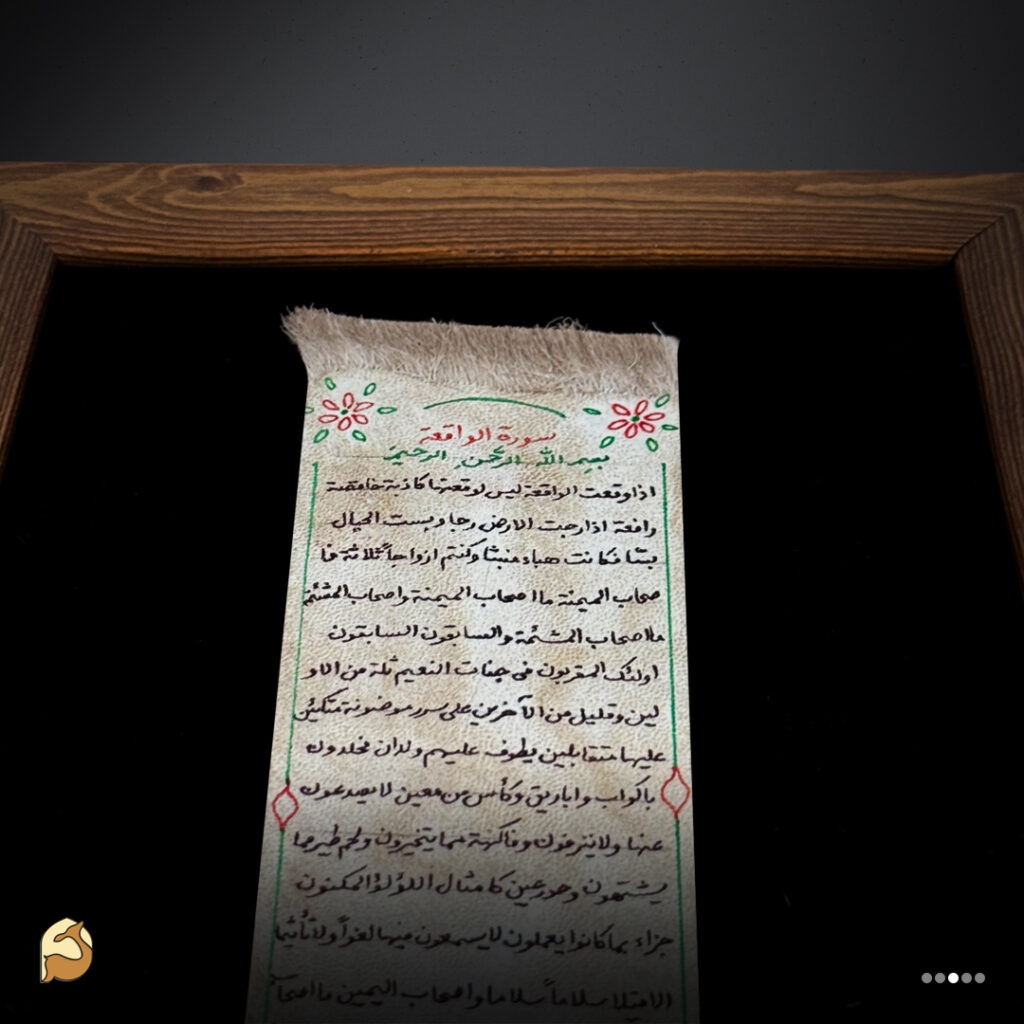 سورة الواقعة
بسم الله الرحمن الرحيم
اذا وقعت الواقعة ليس لوقعتها كاذبة خافضة
رافعة اذا رجت الارض رجا و بست الجبال
بسّا فكانت هباء منبثا وكنتم ازواجاً ثلاثة فا
صحاب الميمنة ما اصحاب الميمنة واصحاب المشئمة
ما اصحاب المشئمة والسابقون السابقون
اولئك المقربون في جنات النعيم ثلة من الاو
لين وقليل من الآخرين على سرر موضونة متكئين
عليها متقابلين يطوف عليهم ولدان مخلدون
باكواب و اباريق وكأس من معين لا يصدعون
عنها ولا ينزفون وفاكهة مما يتخيرون ولحم طير مما
يشتهون وحور عين كامثال اللؤلؤ المكنون
جزاء بما كانوا يعملون لا يسمعون فيها لغواً ولا تأثيما
الا قيلا سلاماً سلاما واصحاب اليمين ما اصحاب